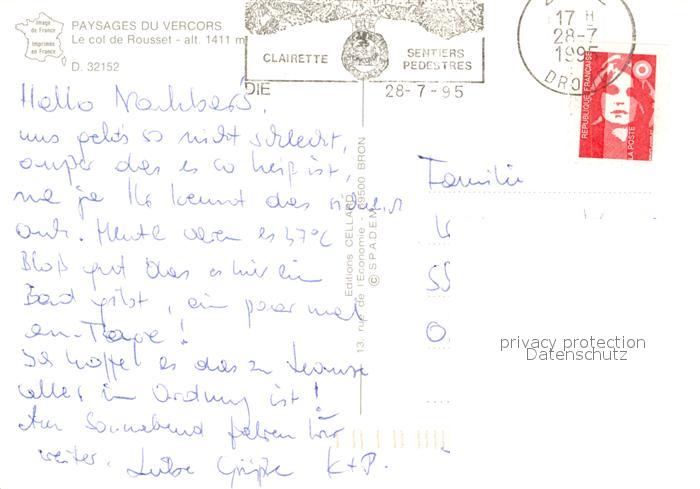 Image
de France
Imprimée
en France
PAYSAGES DU VERCORS
Le col de Rousset - alt. 1411 m
D. 32152
CLAIRETTE
SENTIERS
PEDESTRES
DIE
28-7-95
17 H
28-7
1995
REPUBLIQUE FRANÇAISE
LA POSTE
Hallo Nachbars,
uns geht's so nicht schlecht,
außer das es so heiß ist,
na ja Ihr kennt das
auch. Heute waren es 37°C
Bloß gut das es hier ein
Bad gibt, ein paar mal
am Tage!
Ich hoffe es das zu Hause
alles in Ordnung ist!
Am Sonnabend fahren wir
weiter. Liebe Grüße K+P.
Editions CELLARD
13, rue de l'Economie - 69500 BRON
© SPADEM
Familie
privacy protection
Datenschutz